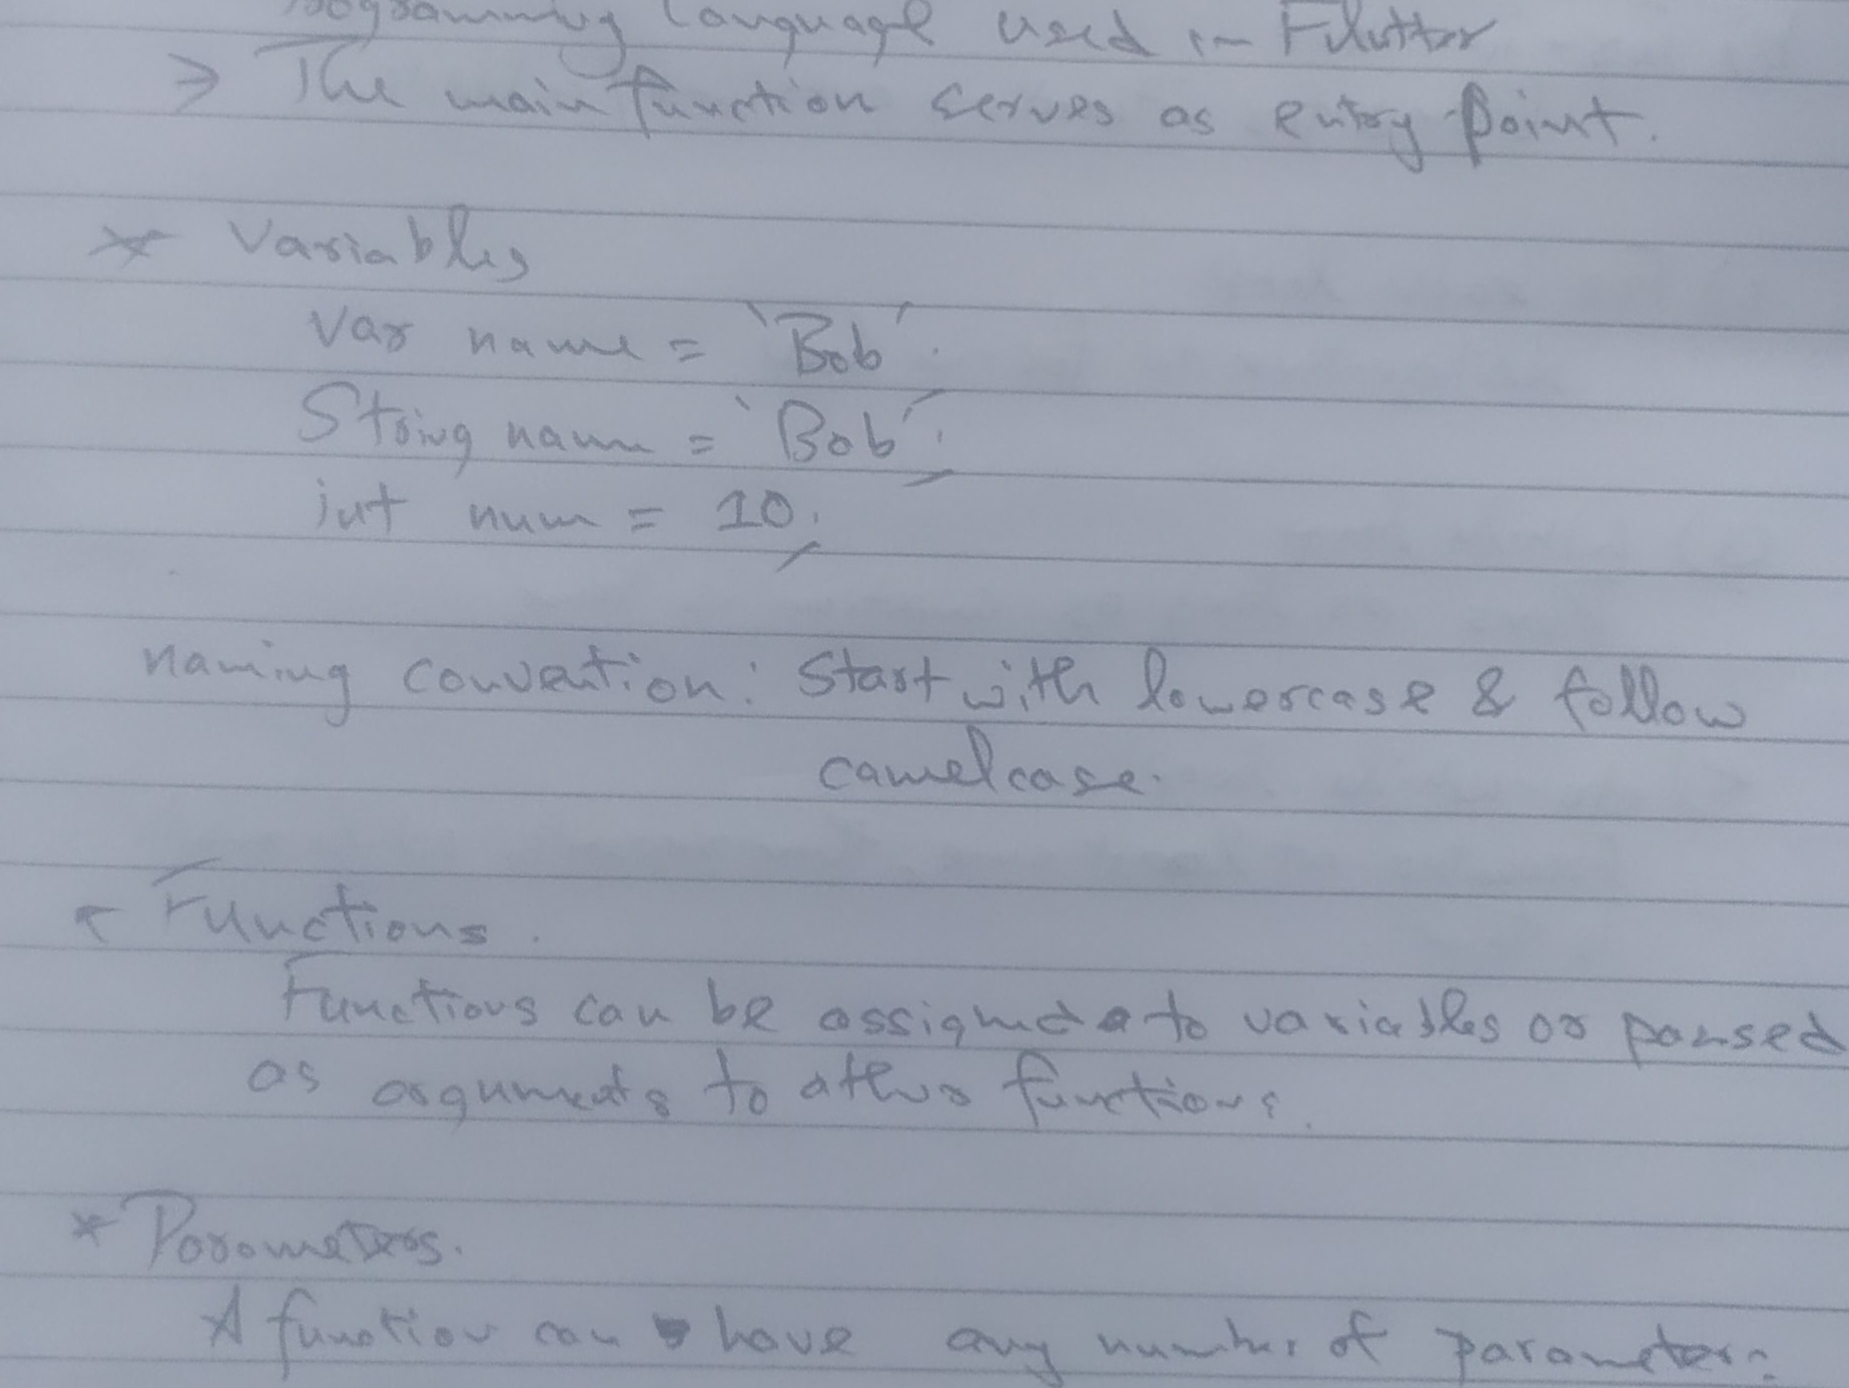 Programming Language used in Flutter
⇒ The main function serves as entry point.
* Variables
Var name = 'Bob';
String name = 'Bob';
int num = 10;
naming convention: Start with lowercase & follow
camelcase.
* Functions.
Functions can be assigned to variables or passed
as arguments to other functions.
* Parameters.
A function can have any number of parameters